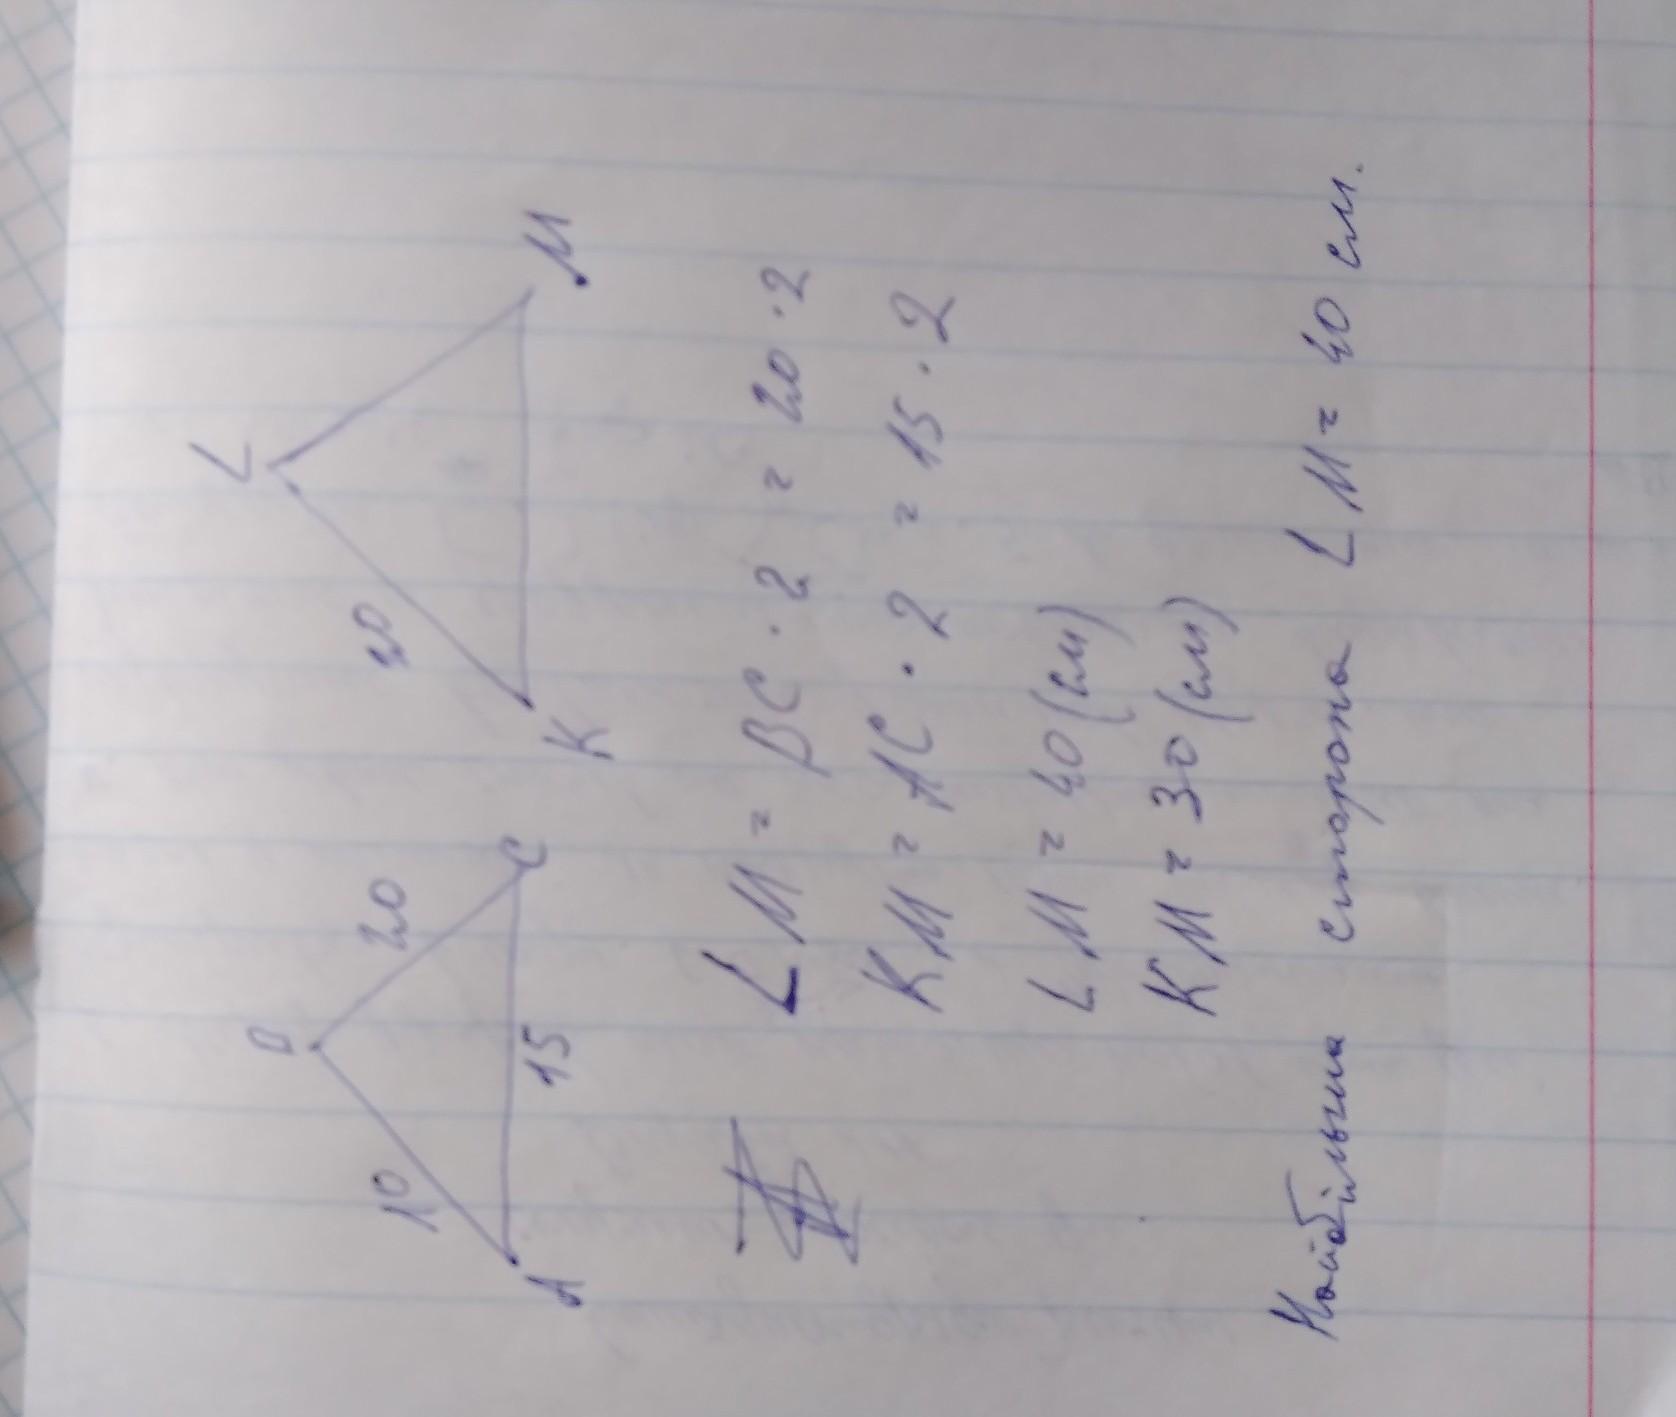 B L
10 20 20
A 15 C K M
LM = BC · 2 = 20 · 2
KM = AC · 2 = 15 · 2
LM = 40 (см)
KM = 30 (см)
Найбільша сторона LM = 40 см.